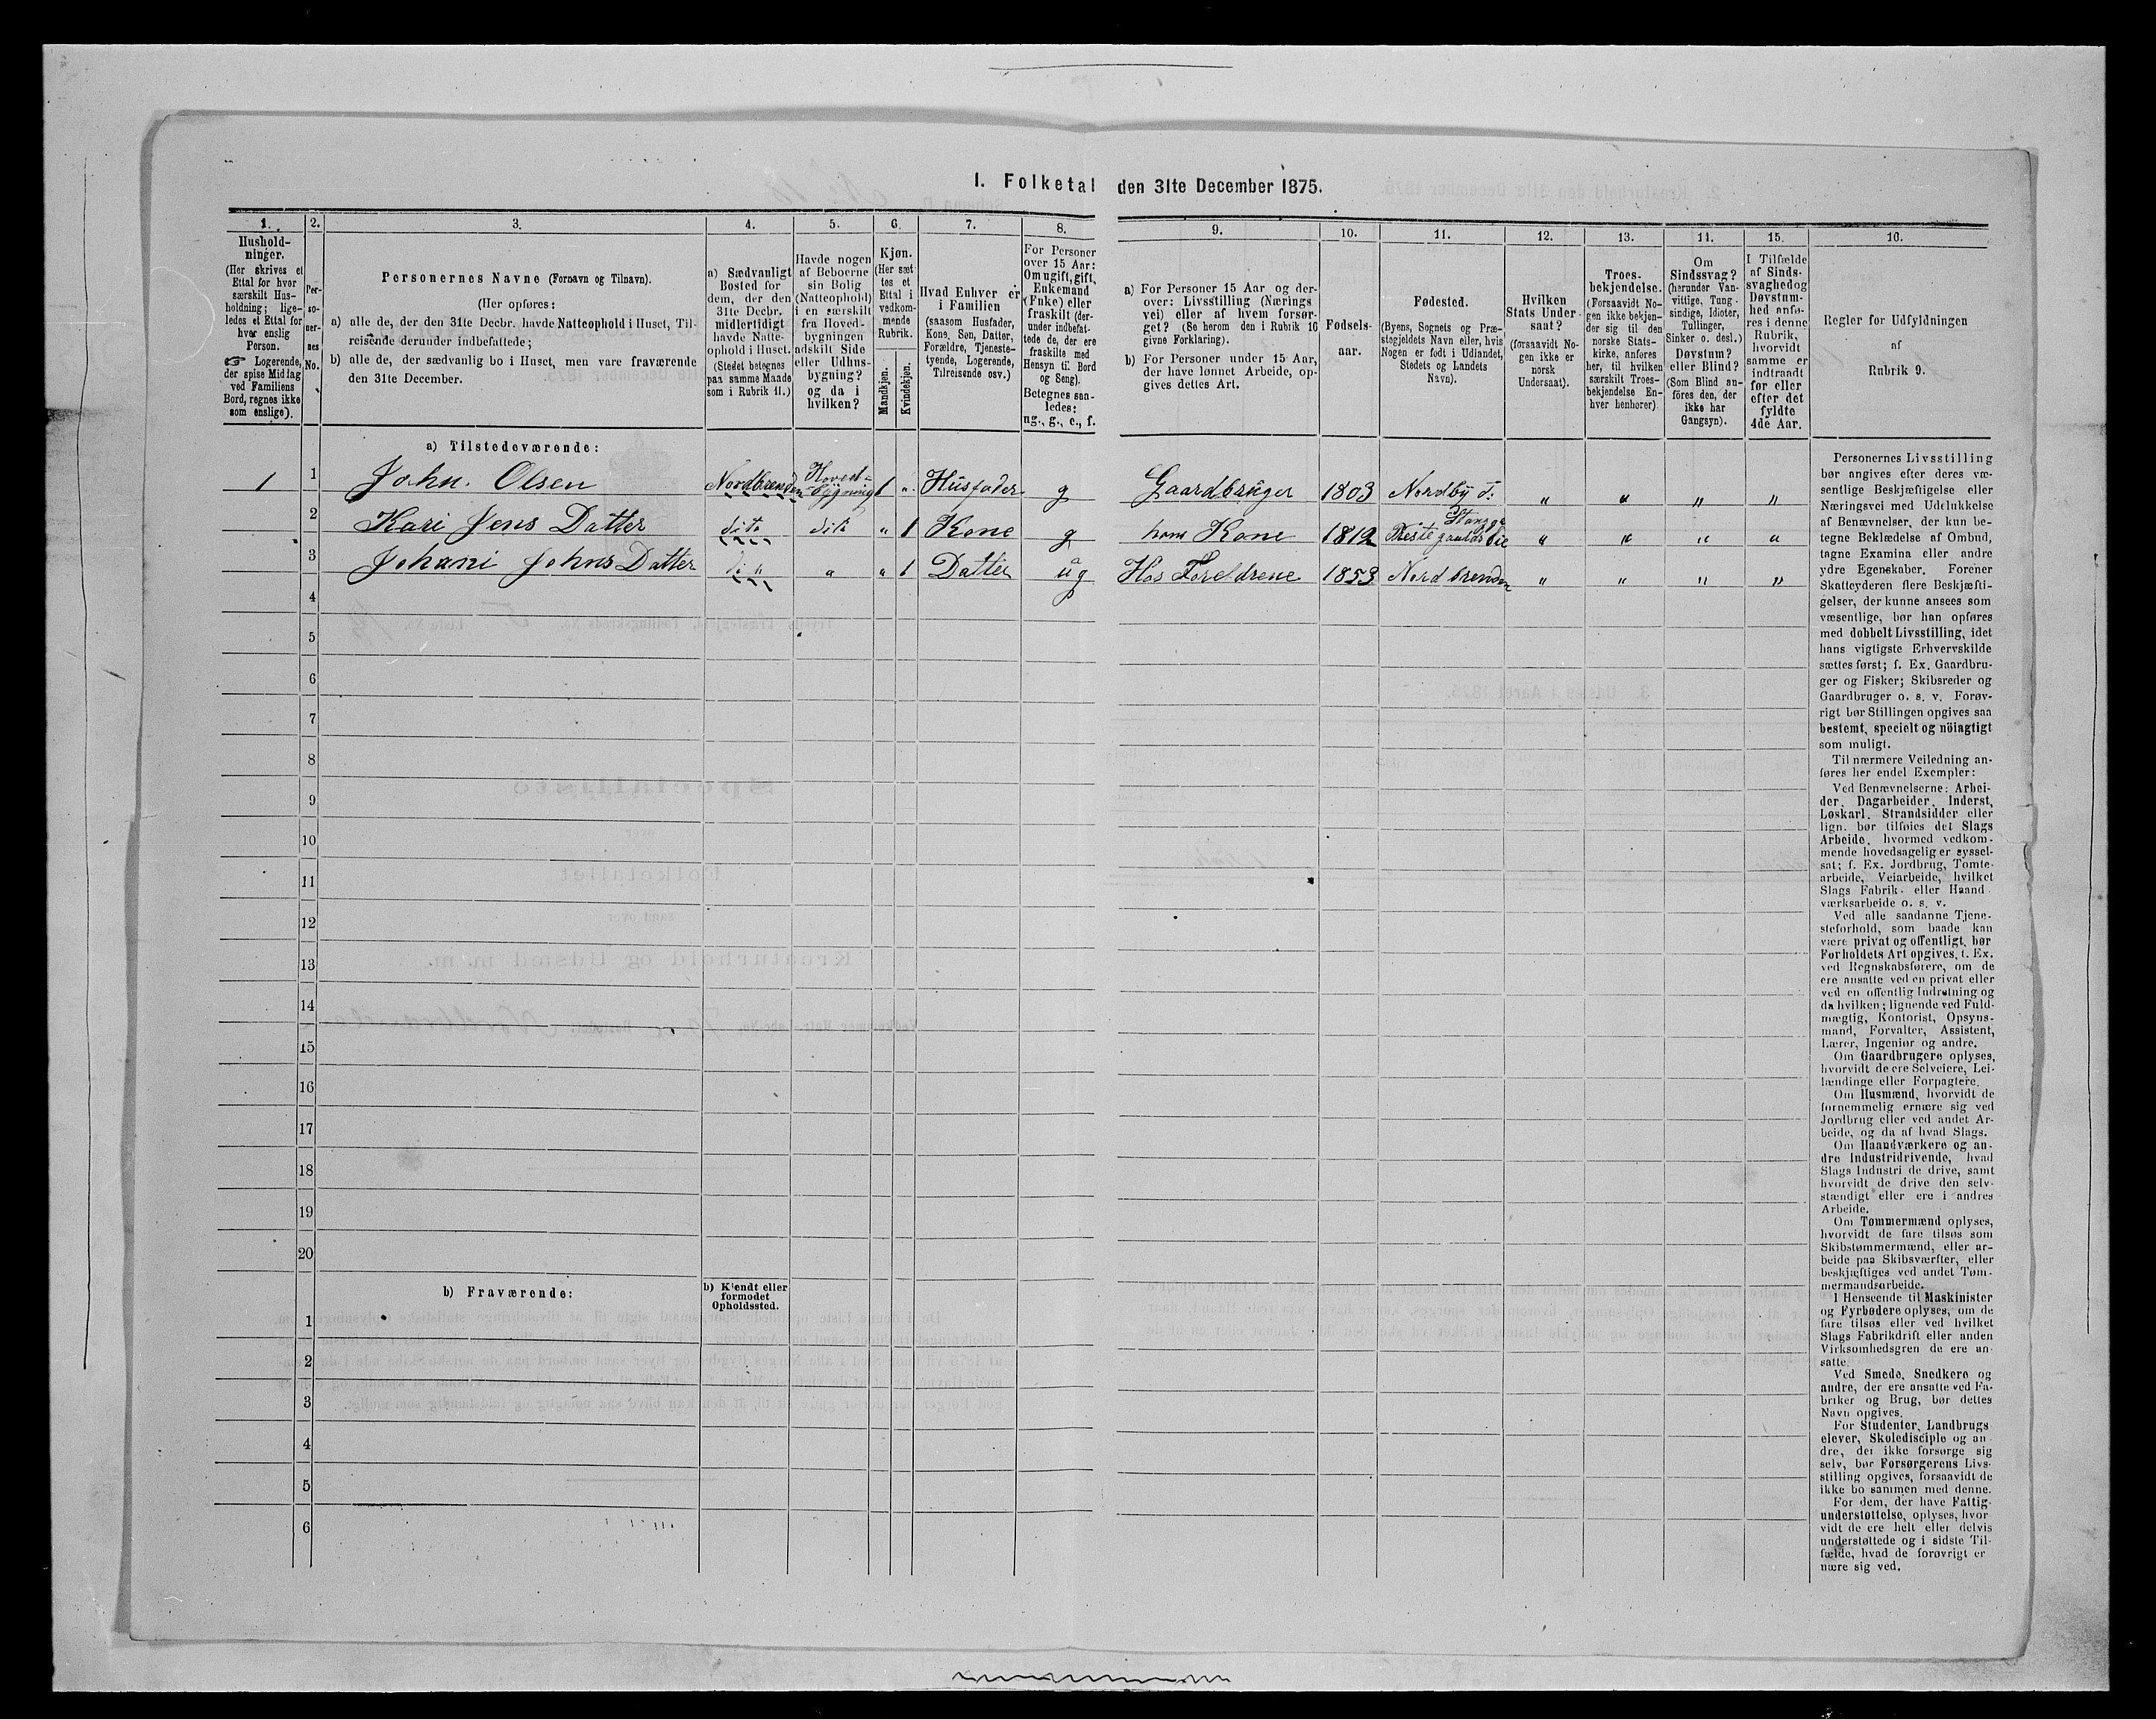 I. Folketal den 31te December 1875.
1.
Hushold-
ninger.
(Her skrives et
Ettal for hver
særskilt Hus-
holdning; lige-
ledes et Ettal for
hver enslig
Person.
☞ Logerende,
der spise Middag
ved Familiens
Bord, regnes ikke
som enslige).
2.
Per-
so-
ner-
nes
No.
3.
Personernes Navne (Fornavn og Tilnavn).
(Her opføres:
a) alle de, der den 31te Decbr. havde Natteophold i Huset, Til-
reisende derunder indbefattede;
b) alle de, der sædvanlig bo i Huset, men vare fraværende
den 31te December.
4.
a) Sædvanligt
Bosted for
dem, der den
31te Decbr.
midlertidigt
havde Natte-
ophold i Huset.
(Stedet betegnes
paa samme Maade
som i Rubrik 11.)
5.
Havde nogen
af Beboerne
sin Bolig
(Natteophold)
i en særskilt
fra Hoved-
bygningen
adskilt Side
eller Udhus-
bygning?
og da i
hvilken?
6.
Kjøn.
(Her sæt-
tes et
Ettal i
vedkom-
mende
Rubrik.
Mandkjøn.
Kvindekjøn.
7.
Hvad Enhver er
i Familien
(saasom Husfader,
Kone, Søn, Datter,
Forældre, Tjeneste-
tyende, Logerende,
Tilreisende osv.)
8.
For Personer
over 15 Aar:
Om ugift, gift,
Enkemand
(Enke) eller
fraskilt (der-
under indbefat-
tede de, der ere
fraskilte med
Hensyn til Bord
og Seng).
Betegnes saa-
ledes:
ug., g., e., f.
9.
a) For Personer 15 Aar og der-
over: Livsstilling (Nærings
vei) eller af hvem forsør-
get? (Se herom den i Rubrik 16
givne Forklaring).
b) For Personer under 15 Aar,
der have lønnet Arbeide, op-
gives dettes Art.
10.
Fødsels-
aar.
11.
Fødested.
(Byens, Sognets og Præ-
stegjeldets Navn eller, hvis
Nogen er født i Udlandet,
Stedets og Landets
Navn).
12.
Hvilken
Stats Under
saat?
(forsaavidt No-
gen ikke er
norsk
Undersaat).
13.
Troes-
bekjendelse.
(Forsaavidt No-
gen ikke bekjen-
der sig til den
norske Stats-
kirke, anføres
her, til hvilken
særskilt Troes-
bekjendelse En-
hver henhører).
14.
Om
Sindssvag?
(herunder Van-
vittige, Tung-
sindige, Idioter,
Tullinger,
Sinker o. desl.)
Døvstum?
eller Blind?
(Som Blind an-
føres den, der
ikke har
Gangsyn).
15.
I Tilfælde
af Sinds-
svaghed og
Døvstum-
hed anfø-
res i denne
Rubrik,
hvorvidt
samme er
indtraadt
før eller
efter det
fyldte
4de Aar.
16.
Regler for Udfyldningen
af
Rubrik 9.
a) Tilstedeværende:
1 1 John. Olsen Nordbrenden Hoved-bygning 1 " Husfader g Gaardbruger 1803 Nordby " " " "
2 Kari Jens Datter dito dito " 1 Kone g hans Kone 1812 " " " "
3 Johani Johns Datter " " 1 Datter ug Hos Foreldrene 1853 Nordbrenden " " " "
4
5
6
7
8
9
10
11
12
13
14
15
16
17
18
19
20
b) Fraværende:
b) Kjendt eller
formodet
Opholdssted.
1
2
3
4
5
6
Personernes Livsstilling
bør angives efter deres væ-
sentlige Beskjæftigelse eller
Næringsvei med Udelukkelse
af Benævnelser, der kun be-
tegne Beklædelse af Ombud,
tagne Examina eller andre
ydre Egenskaber. Forener
Skatteyderen flere Beskjæfti-
gelser, der kunne ansees som
væsentlige, bør han opføres
med dobbelt Livsstilling, idet
hans vigtigste Erhvervskilde
sættes først; f. Ex. Gaardbru-
ger og Fisker; Skibsreder og
Gaardbruger o. s. v. Forøv-
rigt bør Stillingen opgives saa
bestemt, specielt og nöiagtigt
som muligt.
Til nærmere Veiledning an-
føres her endel Exempler:
Ved Benævnelserne: Arbei-
der, Dagarbeider, Inderst,
Løskarl, Strandsidder eller
lign. bør tilføies det Slags
Arbeide, hvormed vedkom-
mende hovedsagelig er syssel-
sat; f. Ex. Jordbrug, Tomte-
arbeide, Veiarbeide, hvilket
Slags Fabrik- eller Haand-
værksarbeide o. s. v.
Ved alle saadanne Tjene-
steforhold, som baade kan
være privat og offentligt, bør
Forholdets Art opgives, f. Ex.
ved Regnskabsførere, om de
ere ansatte ved en privat eller
ved en offentlig Indretning og
da hvilken; lignende ved Fuld-
mægtig, Kontorist, Opsyns-
mand, Forvalter, Assistent,
Lærer, Ingeniør og andre.
Om Gaardbrugere oplyses,
hvorvidt de ere Selveiere, Lei-
lændinge eller Forpagtere.
Om Husmænd, hvorvidt de
fornemmelig ernære sig ved
Jordbrug eller ved andet Ar-
beide, og da af hvad Slags.
Om Haandværkere og an-
dre Industridrivende, hvad
Slags Industri de drive, samt
hvorvidt de drive den selv-
stændigt eller ere i andres
Arbeide.
Om Tømmermænd oplyses,
hvorvidt de fare tilsøs som
Skibstømmermænd, eller ar-
beide paa Skibsværfter, eller
beskjæftiges ved andet Tøm-
mermandsarbeide.
I Henseende til Maskinister
og Fyrbødere oplyses, om de
fare tilsøs eller ved hvilket
Slags Fabrikdrift eller anden
Virksomhedsgren de ere an-
satte.
Ved Smede, Snedkere og
andre, der ere ansatte ved Fa-
briker og Brug, bør dettes
Navn opgives.
For Studenter, Landbrugs
elever, Skoledisciple og an-
dre, der ikke forsørge sig
selv, bør Forsørgerens Livs-
stilling opgives, forsaavidt de
ikke bo sammen med denne.
For dem, der have Fattig-
understøttelse, oplyses, hvor
vidt de ere helt eller delvis
understøttede og i sidste Til-
fælde, hvad de forøvrigt er
nære sig ved.